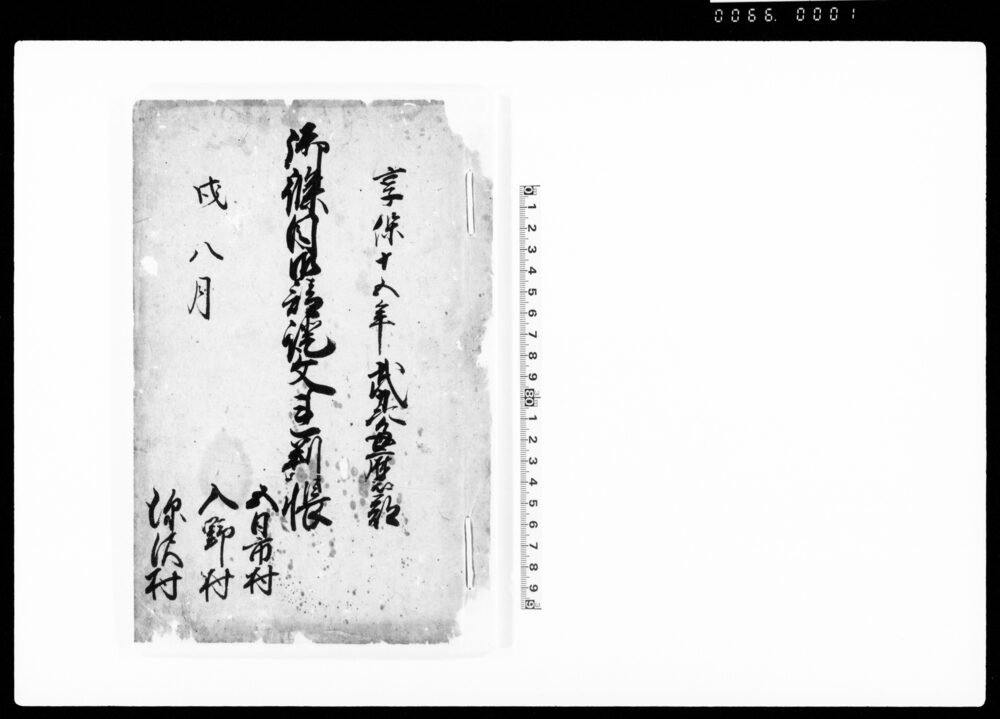 0066. 0001
享保十五年 武州多麿郡
御條目御請證文連判帳
戌 八月
五日市村
入野村
深沢村
0 1 2 3 4 5 6 7 8 9 1 2 3 4 5 6 7 8 9